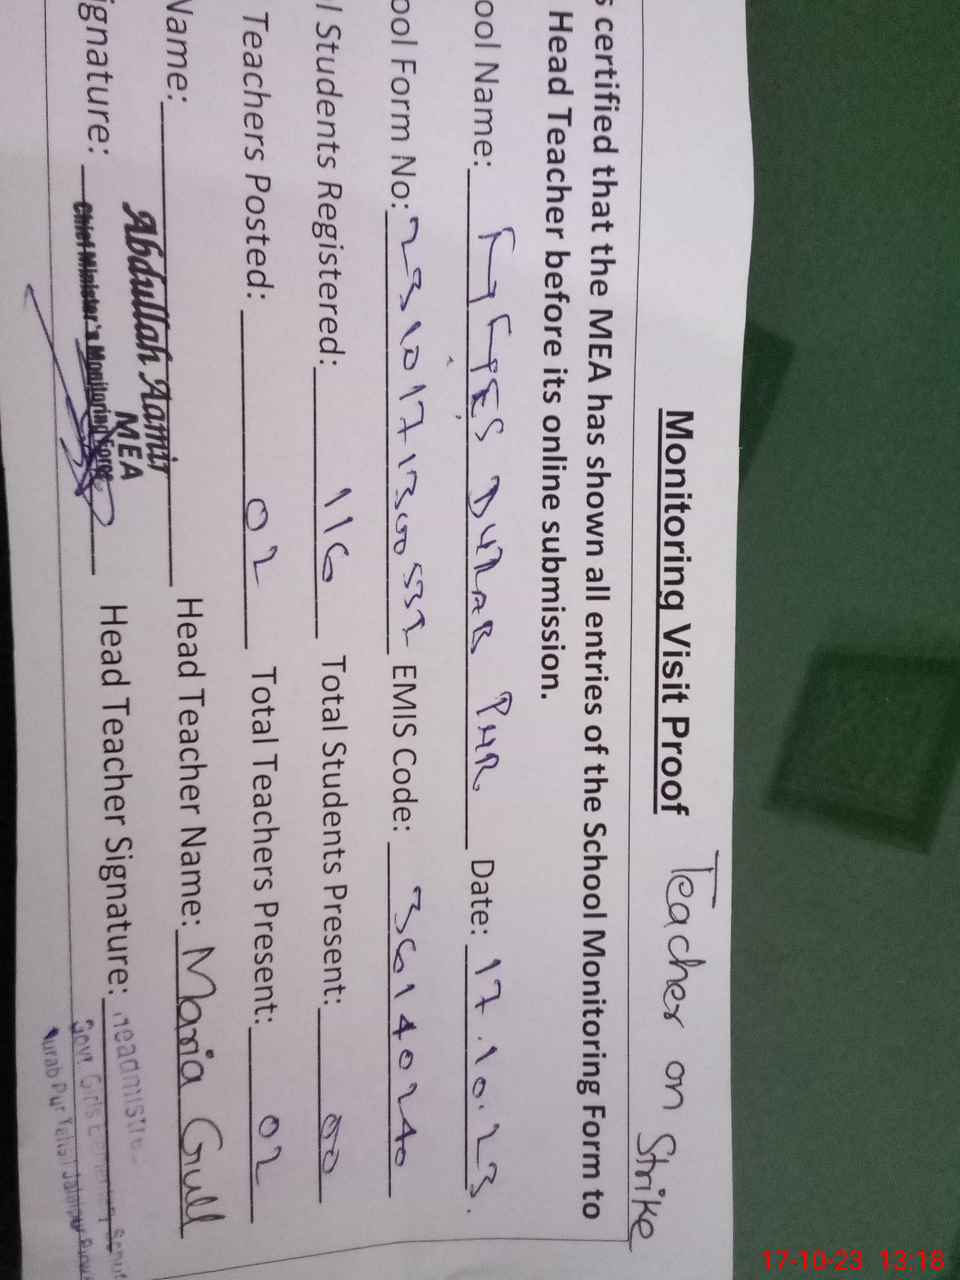 Monitoring Visit Proof Teacher on Strike
s certified that the MEA has shown all entries of the School Monitoring Form to
Head Teacher before its online submission.
ool Name: DURAB PUR Date: 17.10.23.
ool Form No: EMIS Code: 36140240
l Students Registered: 116 Total Students Present: 00
Teachers Posted: 02 Total Teachers Present: 02
Name: Abdullah Aamir Head Teacher Name: Maria Gull
MEA
ignature: Chief Minister's Monitoring Force Head Teacher Signature:
Govt. Girls Elementary
17-10-23 13:18